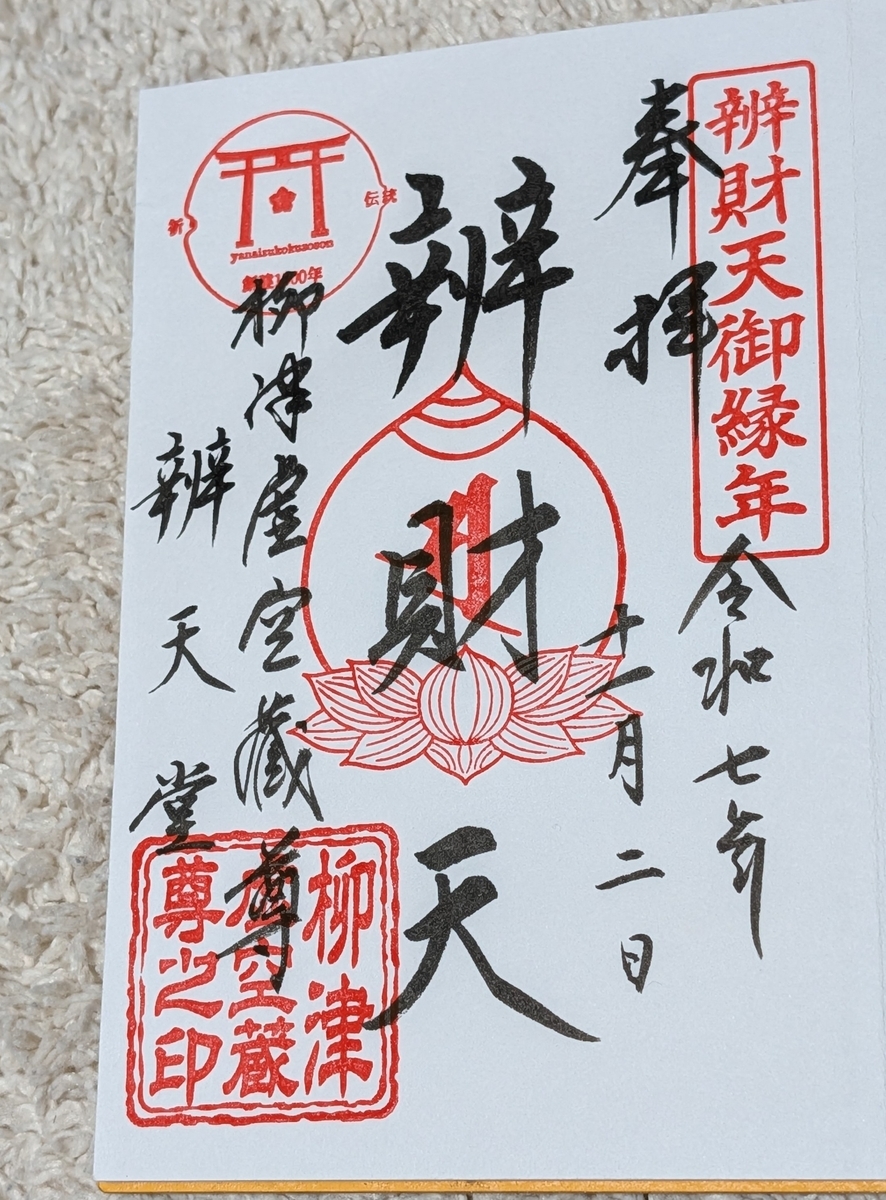 辨財天御縁年
奉拝
令和七年
十一月二日
辨財天
柳津虚空蔵尊
辨天堂
伝統
yanaizukokuzoson
柳津
虚空蔵
尊之印